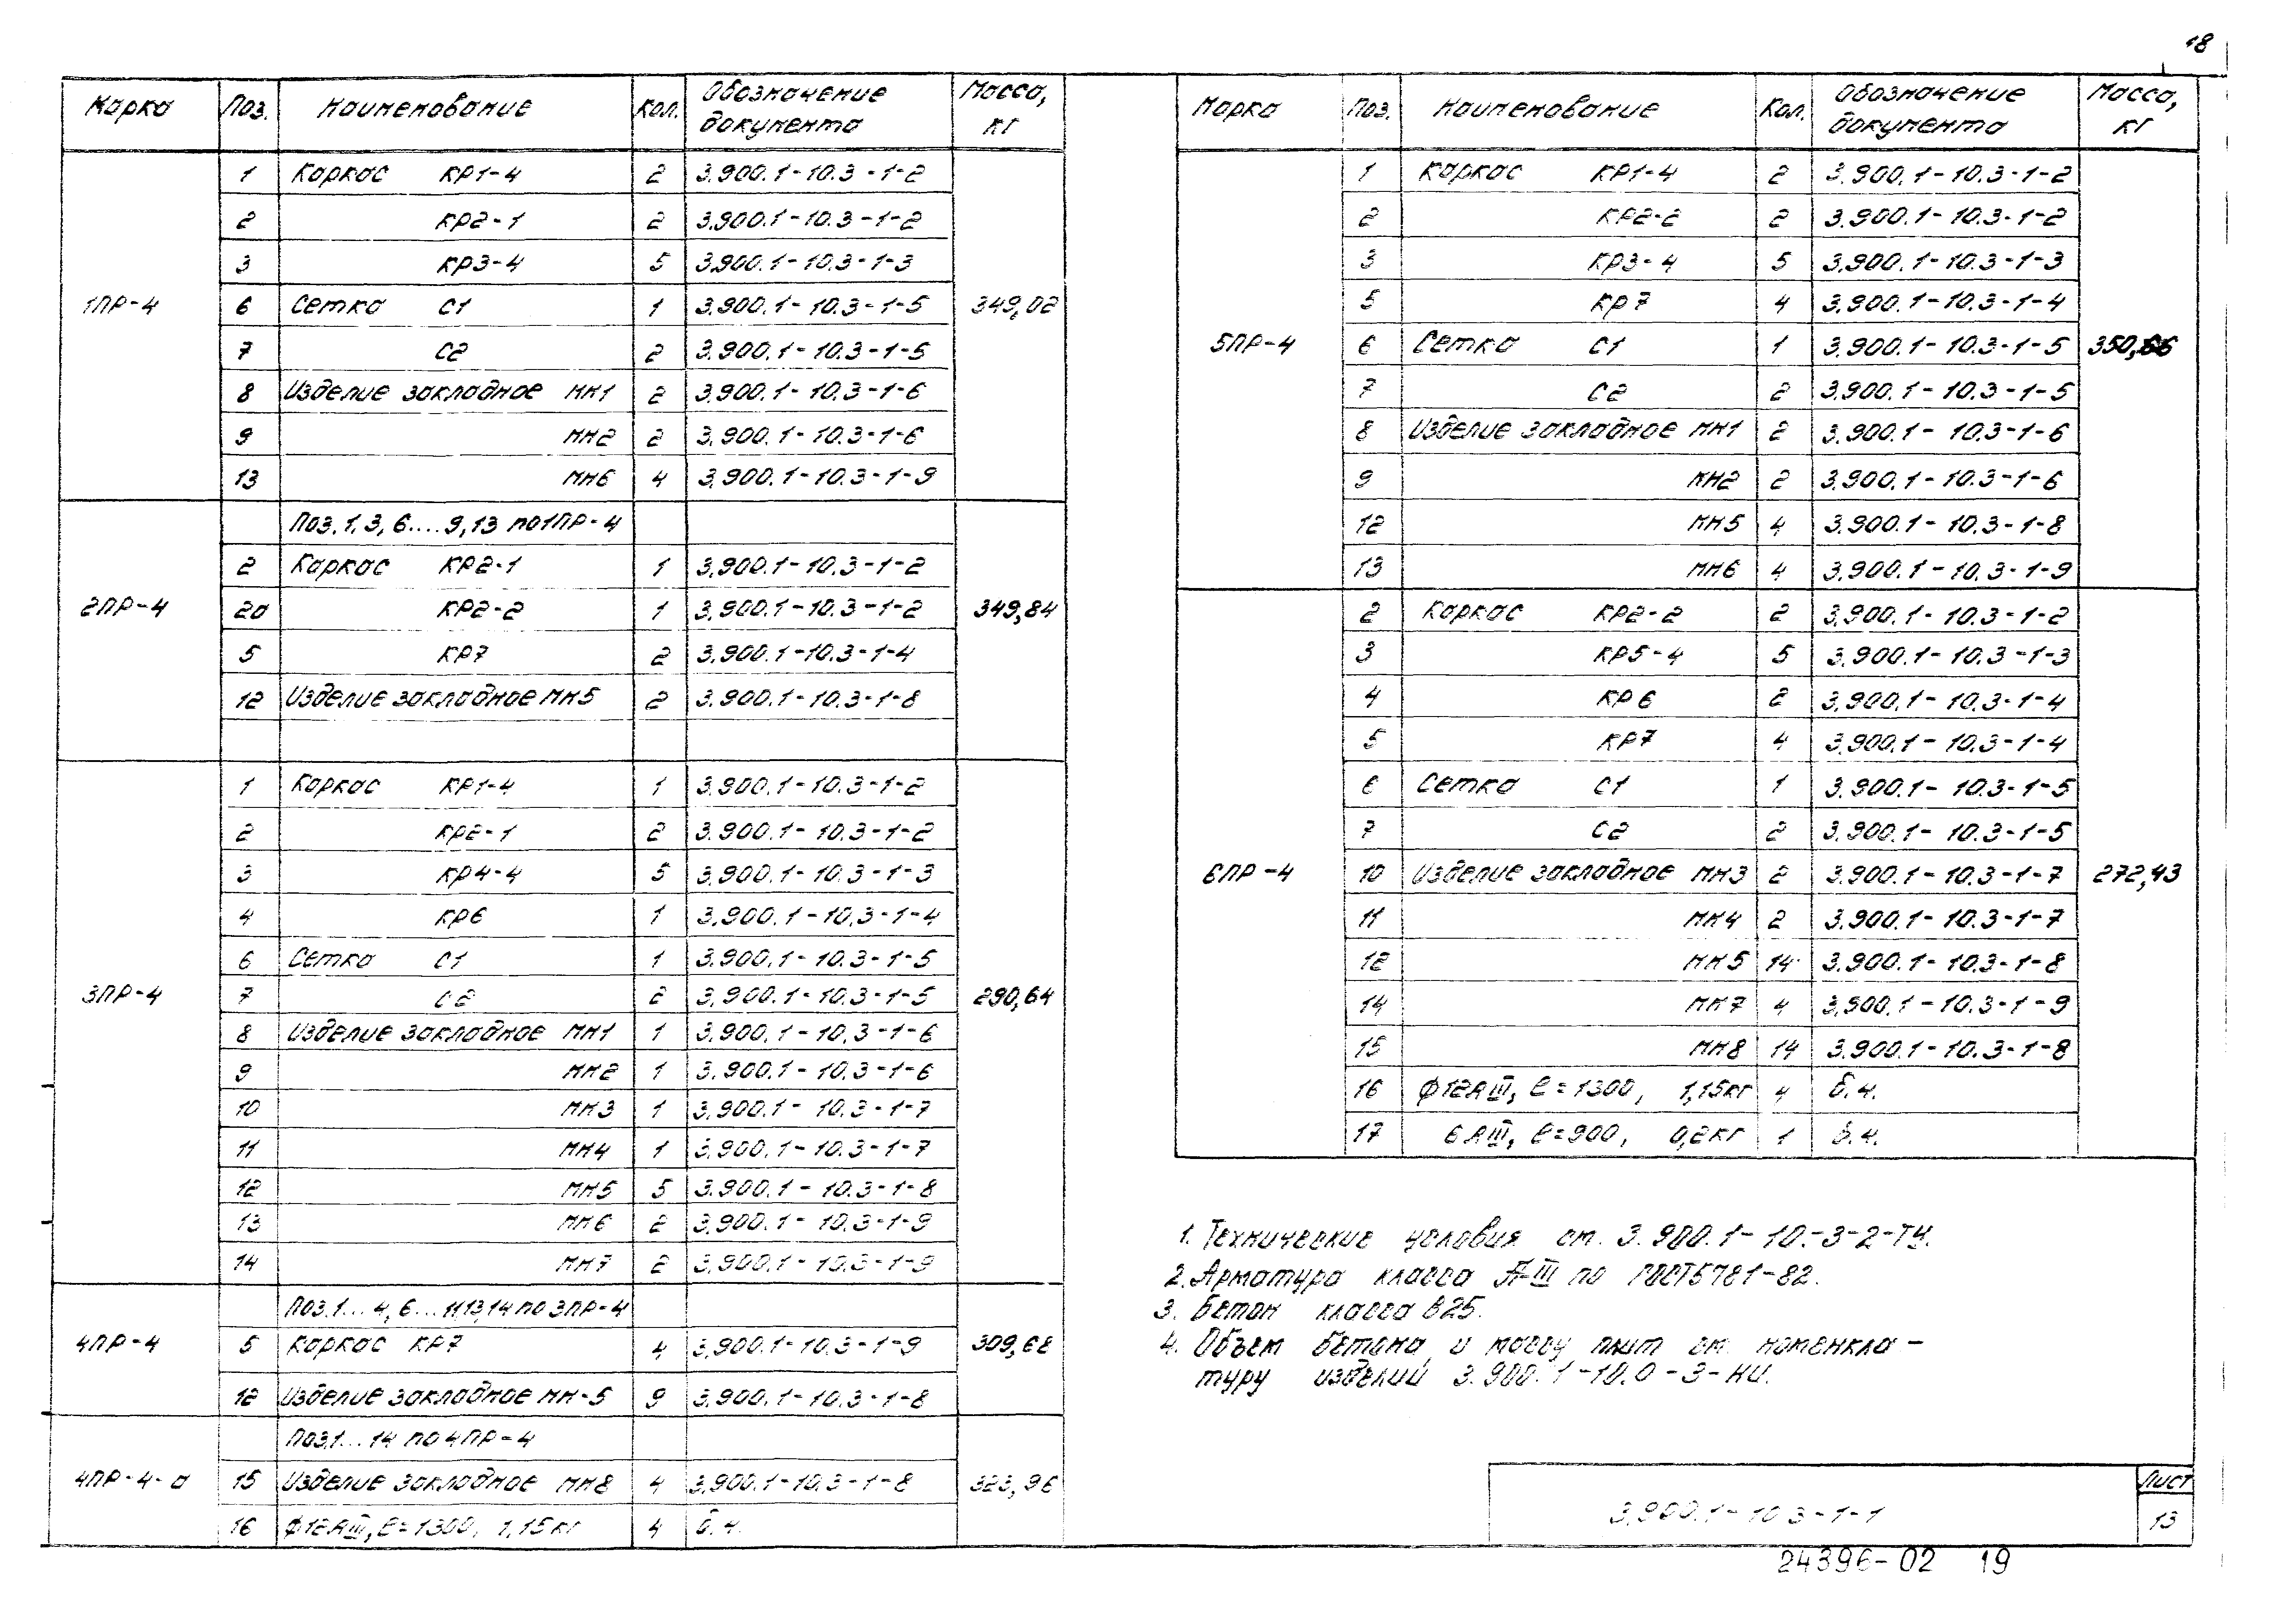 18
Марка Поз. Наименование Кол. Обозначение документа Масса, кг
1ПР-4 349,02
1 Каркас КР1-4 2 3.900.1-10.3-1-2
2 КР2-1 2 3.900.1-10.3-1-2
3 КР3-4 5 3.900.1-10.3-1-3
6 Сетка С1 1 3.900.1-10.3-1-5
7 С2 2 3.900.1-10.3-1-5
8 Изделие закладное МН1 2 3.900.1-10.3-1-6
9 МН2 2 3.900.1-10.3-1-6
13 МН6 4 3.900.1-10.3-1-9
2ПР-4 349,84
Поз. 1, 3, 6....9, 13 по 1ПР-4
2 Каркас КР2-1 1 3.900.1-10.3-1-2
2а КР2-2 1 3.900.1-10.3-1-2
5 КР7 2 3.900.1-10.3-1-4
12 Изделие закладное МН5 2 3.900.1-10.3-1-8
3ПР-4 290,64
1 Каркас КР1-4 1 3.900.1-10.3-1-2
2 КР2-1 2 3.900.1-10.3-1-2
3 КР4-4 5 3.900.1-10.3-1-3
4 КР6 1 3.900.1-10.3-1-4
6 Сетка С1 1 3.900.1-10.3-1-5
7 С2 2 3.900.1-10.3-1-5
8 Изделие закладное МН1 1 3.900.1-10.3-1-6
9 МН2 1 3.900.1-10.3-1-6
10 МН3 1 3.900.1-10.3-1-7
11 МН4 1 3.900.1-10.3-1-7
12 МН5 5 3.900.1-10.3-1-8
13 МН6 2 3.900.1-10.3-1-9
14 МН7 2 3.900.1-10.3-1-9
4ПР-4 309,68
Поз.1...4, 6...11,13,14 по 3ПР-4
5 Каркас КР7 4 3.900.1-10.3-1-9
12 Изделие закладное МН-5 9 3.900.1-10.3-1-8
4ПР-4-а 323,96
Поз.1...14 по 4ПР-4
15 Изделие закладное МН8 4 3.900.1-10.3-1-8
16 Ф12АIII, ℓ=1300, 1,15кг 4 б.ч.
Марка Поз. Наименование Кол. Обозначение документа Масса, кг
5ПР-4
1 Каркас КР1-4 2 3.900.1-10.3-1-2
2 КР2-2 2 3.900.1-10.3-1-2
3 КР3-4 5 3.900.1-10.3-1-3
5 КР7 4 3.900.1-10.3-1-4
6 Сетка С1 1 3.900.1-10.3-1-5
7 С2 2 3.900.1-10.3-1-5
8 Изделие закладное МН1 2 3.900.1-10.3-1-6
9 КН2 2 3.900.1-10.3-1-6
12 МН5 4 3.900.1-10.3-1-8
13 МН6 4 3.900.1-10.3-1-9
6ПР-4 272,43
2 Каркас КР2-2 2 3.900.1-10.3-1-2
3 КР5-4 5 3.900.1-10.3-1-3
4 КР6 2 3.900.1-10.3-1-4
5 КР7 4 3.900.1-10.3-1-4
6 Сетка С1 1 3.900.1-10.3-1-5
7 С2 2 3.900.1-10.3-1-5
10 Изделие закладное МН3 2 3.900.1-10.3-1-7
11 МН4 2 3.900.1-10.3-1-7
12 МН5 14 3.900.1-10.3-1-8
14 МН7 4 3.900.1-10.3-1-9
15 МН8 14 3.900.1-10.3-1-8
16 Ф12АIII, ℓ=1300, 1,15кг 4 б.ч.
17 6АIII, ℓ=900, 0,2кг 1 б.ч.
1. Технические условия см. 3.900.1-10.-3-2-ТУ.
2. Арматура класса А-III по ГОСТ5781-82.
3. Бетон класса В25.
4. Объем бетона и массу плит см. номенкла-
туру изделий 3.900.1-10.0-3-НИ.
3.900.1-10.3-1-1
Лист
13
24396-02 19